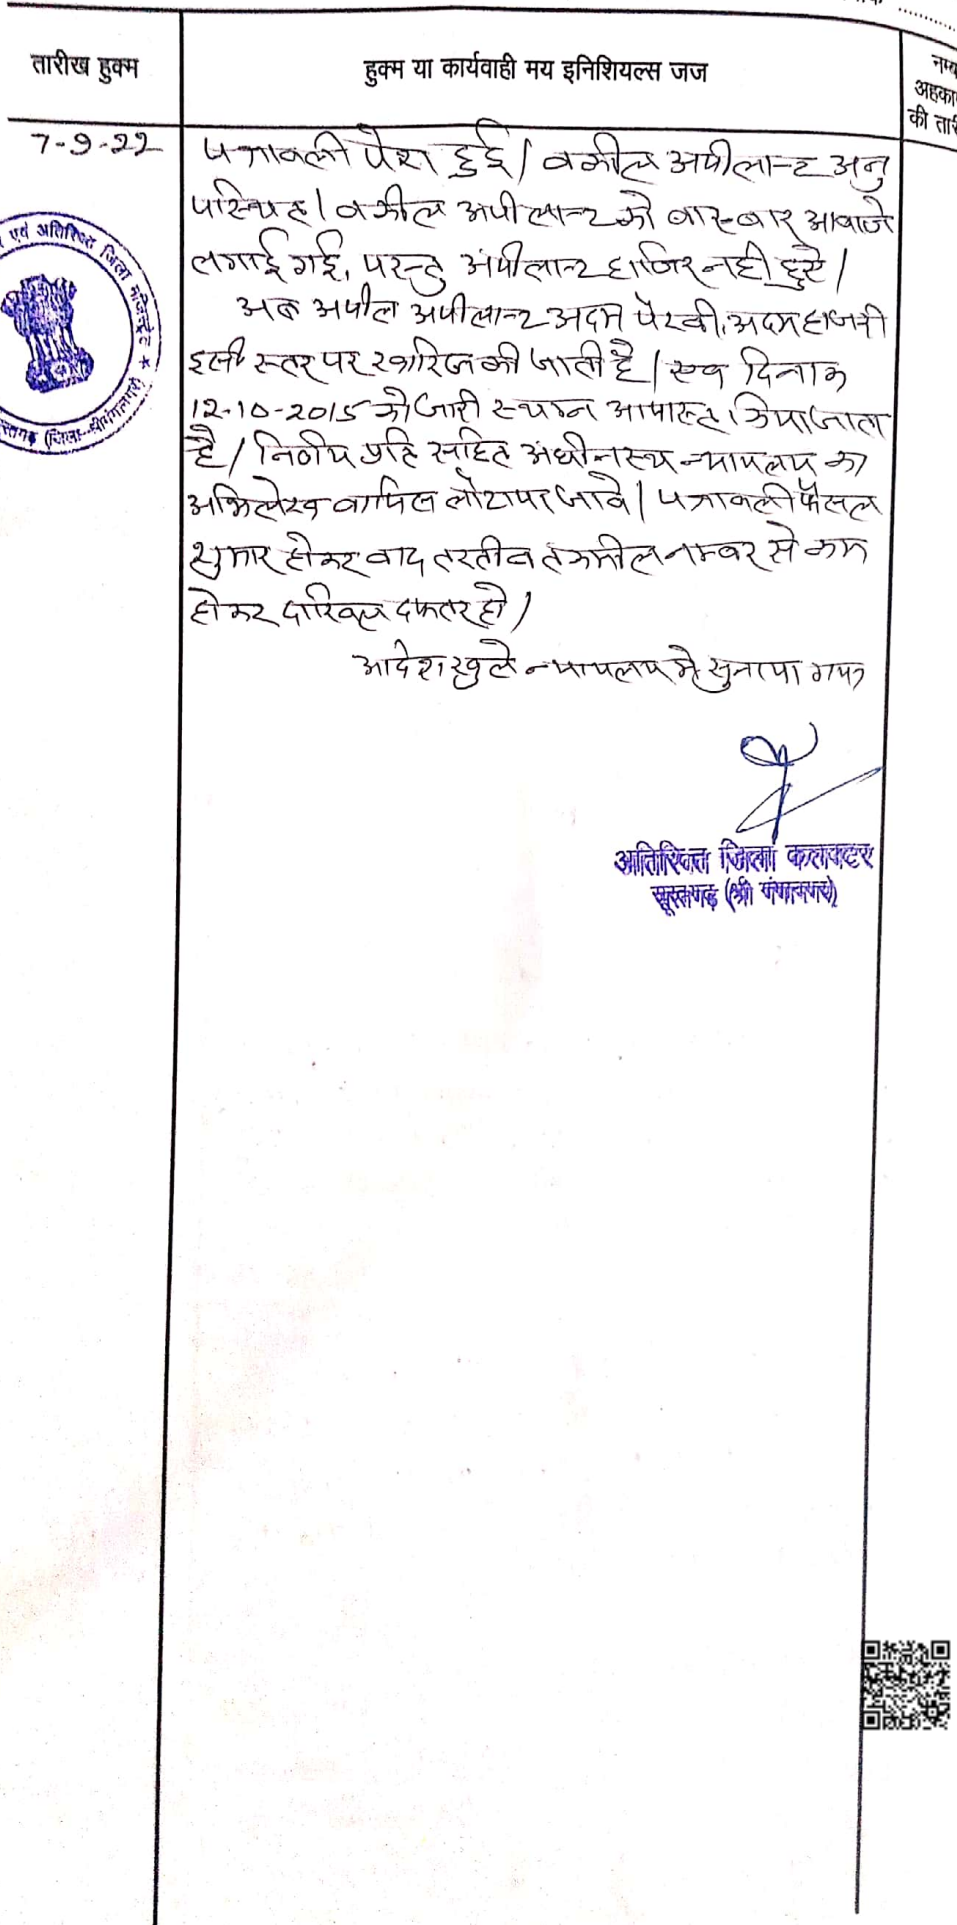 तारीख हुक्म
हुक्म या कार्यवाही मय इनिशियल्स जज
अहका
की तारी
7-9-22
पत्रावली पेश हुई। वकील अपीलान्ट अनु
पस्थित। वकील अपीलान्ट को बार-बार आवाजे
लगाई गई, परन्तु अपीलान्ट हाजिर नही हुऐ।
अतः अपील अपीलान्ट अदम पैरवी, अदम हाजरी
इसी स्तर पर खारिज की जाती है। एवं दिनाक
12-10-2015 को जारी स्थगन अपास्त किया जाता
है। निर्णय प्रति सहित अधीनस्थ न्यायलय का
अभिलेख वापिस लौटाया जावे। पत्रावली फैसल
शुमार होकर वाद तरतीब तकमील नम्बर से कम
होकर दाखिल दफतर हो।
आदेश खुले न्यायलय मे सुनाया गया
अतिरिक्त जिला कलक्टर
सूरतगढ़ (श्री गंगानगर)
एवं अतिरिक्त जिला मजिस्ट्रेट *
रतगढ़ (जिला-श्रीगंगानगर)